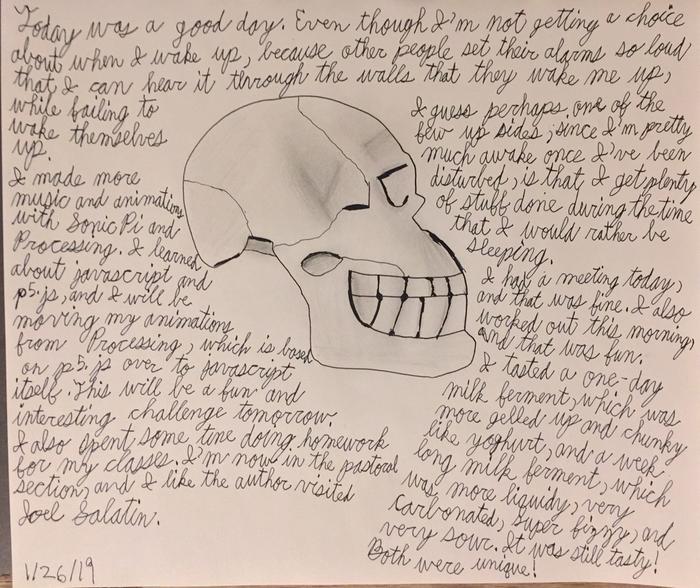 Today was a good day. Even though I'm not getting a choice
about when I wake up, because other people set their alarms so loud
that I can hear it through the walls that they wake me up,
while failing to
wake themselves
up.
I guess perhaps, one of the
few up sides, since I'm pretty
much awake once I've been
disturbed, is that I get plenty
of stuff done during the time
that I would rather be
sleeping.
I made more
music and animations
with Sonic Pi and
Processing. I learned
about javascript and
p5.js, and I will be
moving my animations
from Processing, which is based
on p5.js over to javascript
itself. This will be a fun and
interesting challenge tomorrow.
I also spent some time doing homework
for my classes. I'm now in the pastoral
section, and I like the author visited
Joel Salatin.
I had a meeting today,
and that was fine. I also
worked out this morning,
and that was fun.
I tasted a one-day
milk ferment, which was
more gelled up and chunky
like yoghurt, and a week
long milk ferment, which
was more liquidy, very
carbonated, super fizzy, and
very sour. It was still tasty!
Both were unique!
1/26/19